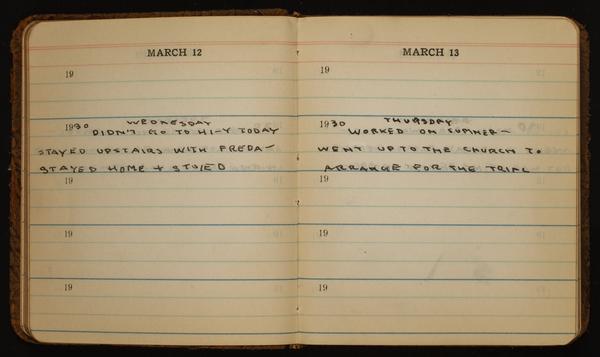 MARCH 12
19
1930 WEDNESDAY
DIDN'T GO TO HI-Y TODAY
STAYED UPSTAIRS WITH FREDA—
STAYED HOME +
19
19
19
MARCH 13
19
1930 THURSDAY
WORKED ON SUMNER—
WENT UP TO THE CHURCH TO
ARRANGE FOR THE TRIAL
19
19
19